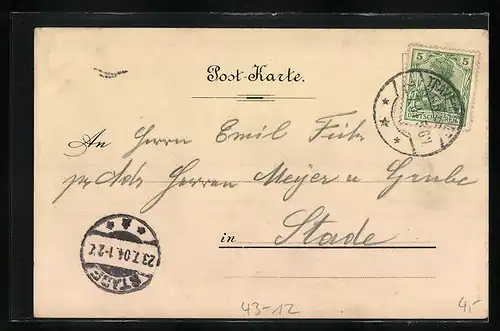 5 5
Post-Karte.
An Herrn Emil
pr Ads Herren Meyer u Grube
in Stade
STADE
23.7.04.1-2 N
43-12
4,-